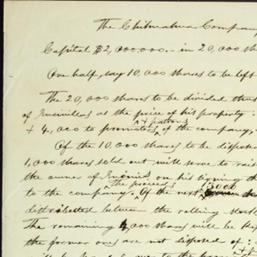 The Chihuahua Company
Capital $2,000,000.- in 20,000 sh
One half, say 10,000 shares to be left
The 20,000 shares to be divided thus
of at the price of his property.
& patrons
+ 4,000 to promoters of the company,
Of the 10,000 shares to be disposed
1,000 shares sold out will serve to rais
the owner of on his signing th
the proceeds 5000
to the company. Of the next
distributed between the selling stock
The remaining 4,000 shares will be kep
the former ones are not disposed of: